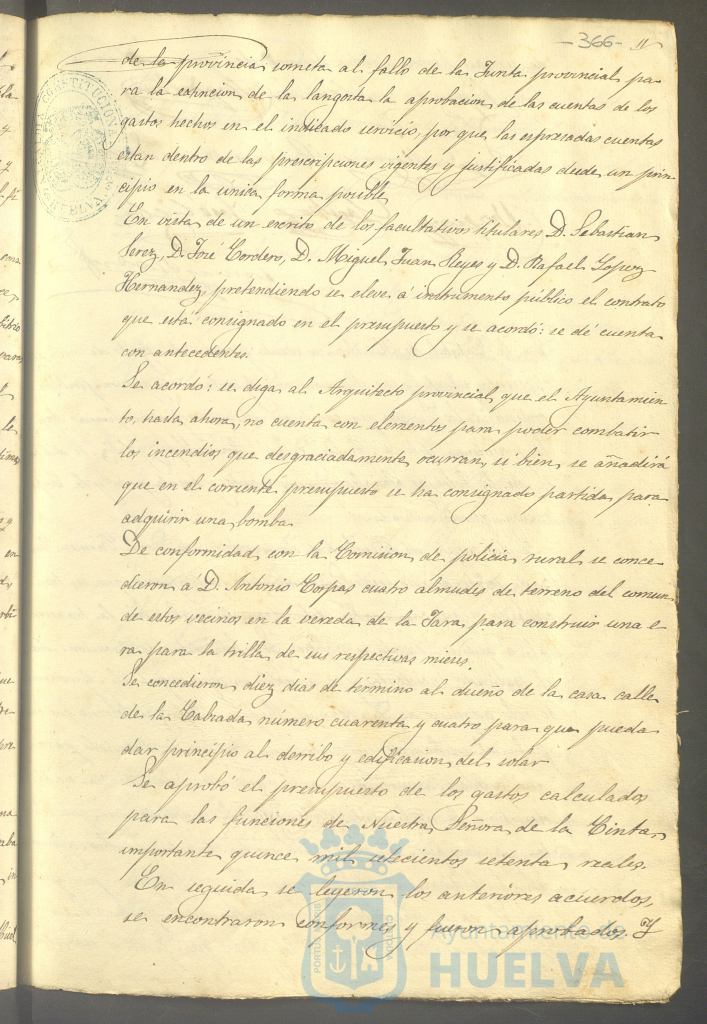 -366- 11
de la provincia someta al fallo de la Junta provincial pa
ra la estincion de la langosta la aprobacion de las cuentas de los
gastos hechos en el indicado servicio, por que las espresadas cuentas
estan dentro de las prescripciones vigentes y justificadas desde un prin
cipio en la unica forma posible
En vista de un escrito de los facultativos titulares D. Sebastian
Perez, D. José Cordero, D. Miguel Juan Reyes y D. Rafael Lopez
Hernandez, pretendiendo se eleve á instrumento público el contrato
que está consignado en el presupuesto y se acordó: se dé cuenta
con antecedentes.
Se acordó: se diga al Arquitecto provincial que el Ayuntamien
to, hasta ahora, no cuenta con elementos para poder combatir
los incendios que desgraciadamente ocurran, si bien se añadirá
que en el corriente presupuesto se ha consignado partida para
adquirir una bomba
De conformidad con la Comision de policia rural se conce
dieron á D. Antonio Corpas cuatro almudes de terreno del comun
de estos vecinos en la vereda de la para construir una e
ra para la trilla de sus respectivas mieses.
Se concedieron diez dias de término al dueño de la casa calle
de la Calzada número cuarenta y cuatro para que pueda
dar principio al derribo y edificacion del solar
Se aprobó el presupuesto de los gastos calculados
para las funciones de Nuestra Señora de la Cinta,
importante quince mil setecientos setenta reales.
En seguida se leyeron los anteriores acuerdos,
se encontraron conformes y fueron aprobados. Y
Ayuntamiento de
HUELVA